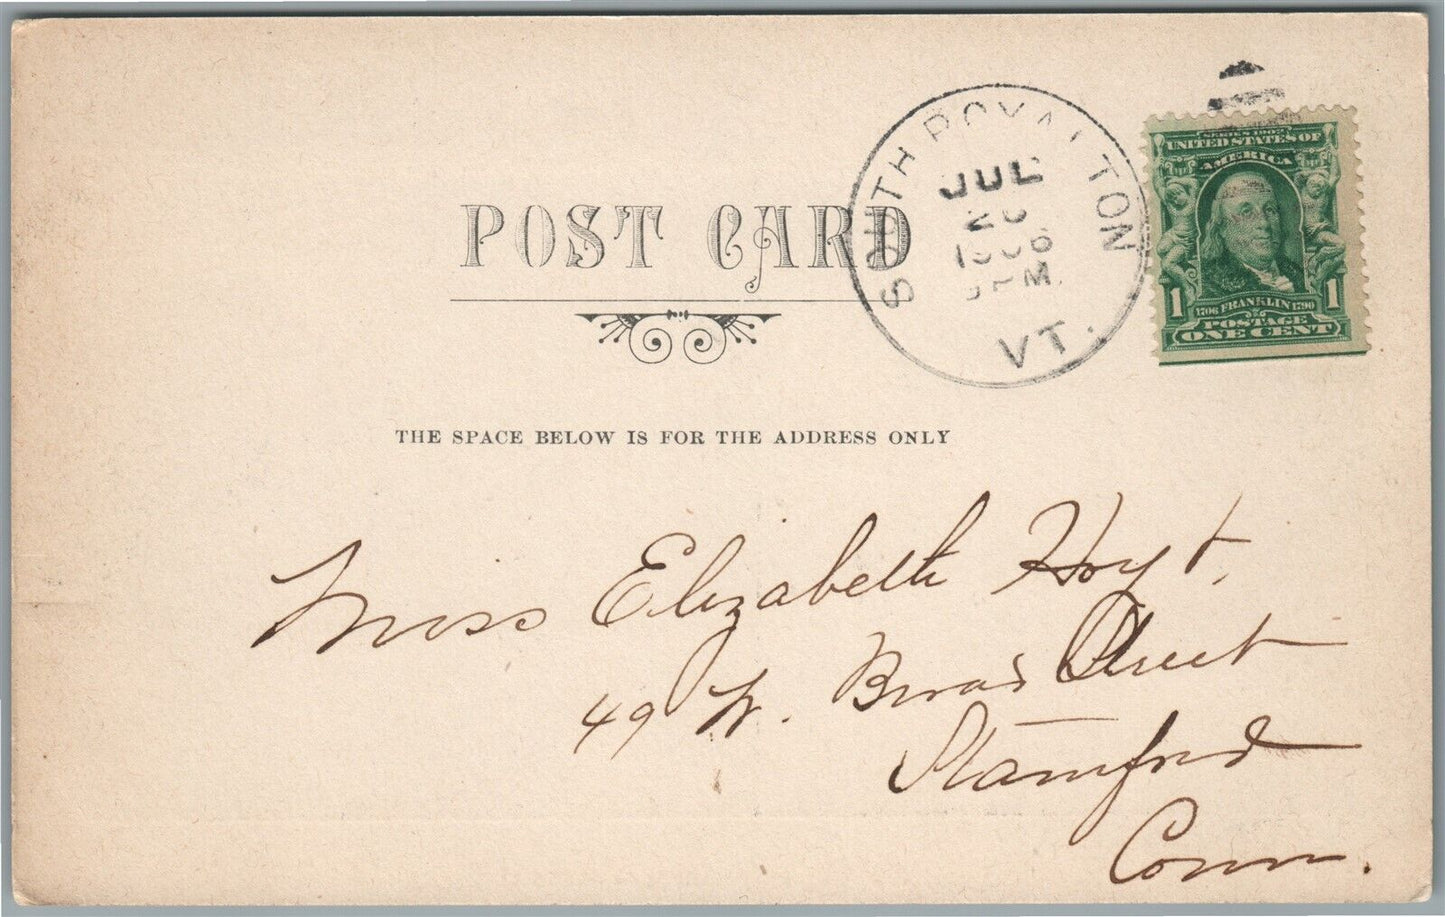 SOUTH ROYALTON
JUL
1906
PM
VT.
SERIES 1902
UNITED STATES OF
AMERICA
1 1706 FRANKLIN 1790 1
POSTAGE
ONE CENT
POST CARD
THE SPACE BELOW IS FOR THE ADDRESS ONLY
Miss Elizabeth Hoyt,
49 W. Broad Street
Stamford
Conn.